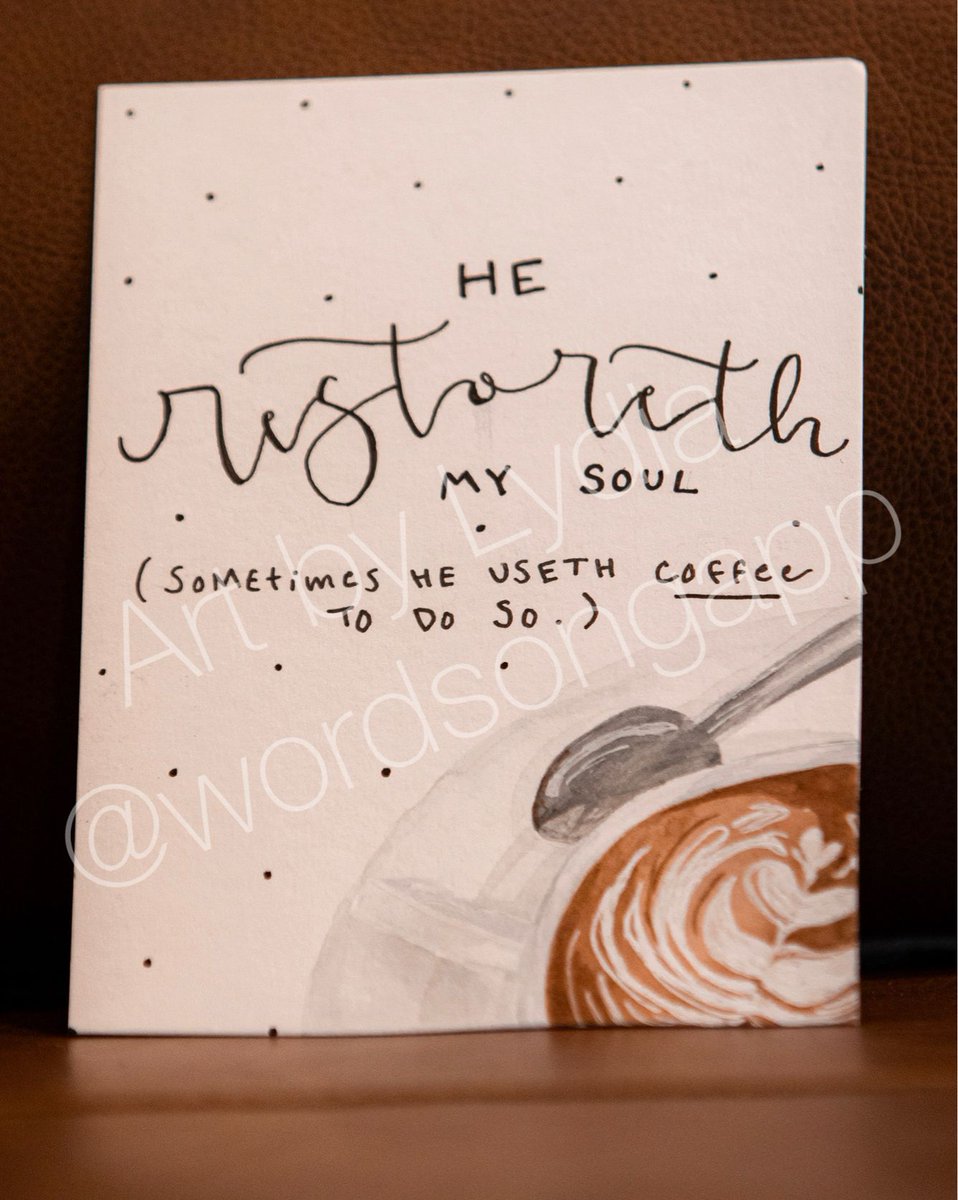 HE
restoreth
MY SOUL
(SOMEtimes HE USETH coffee
TO DO SO.)
Art by Lydia
@wordsongapp